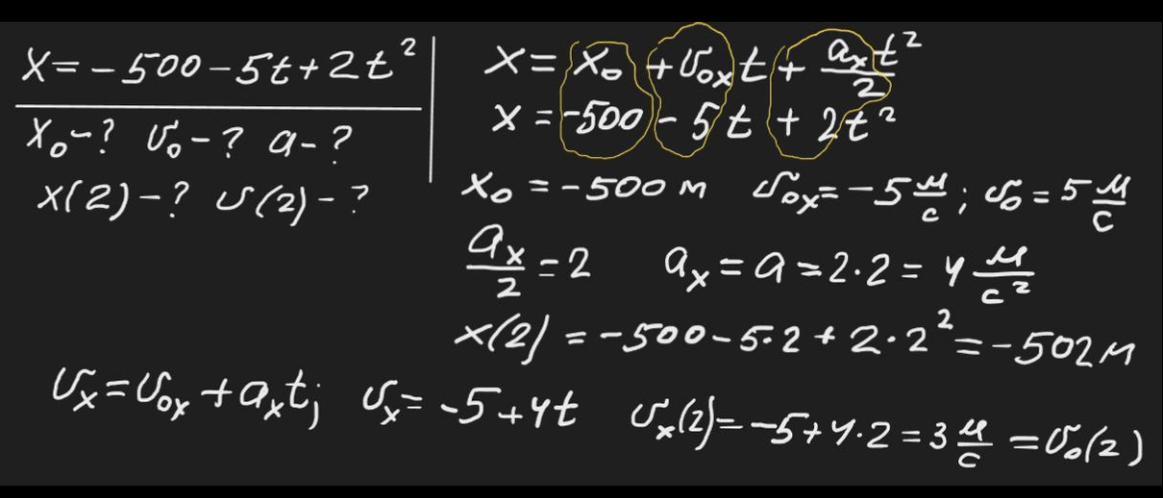 x = -500 - 5t + 2t²
x₀ - ? υ₀ - ? a - ?
x(2) - ? υ(2) - ?
x = x₀ + υ₀ₓt + aₓt²/2
x = -500 - 5t + 2t²
x₀ = -500 м υ₀ₓ = -5 м/с; υ₀ = 5 м/с
aₓ/2 = 2 aₓ = a = 2·2 = 4 м/с²
x(2) = -500 - 5·2 + 2·2² = -502 м
υₓ = υ₀ₓ + aₓt; υₓ = -5 + 4t υₓ(2) = -5 + 4·2 = 3 м/с = υ₀(2)